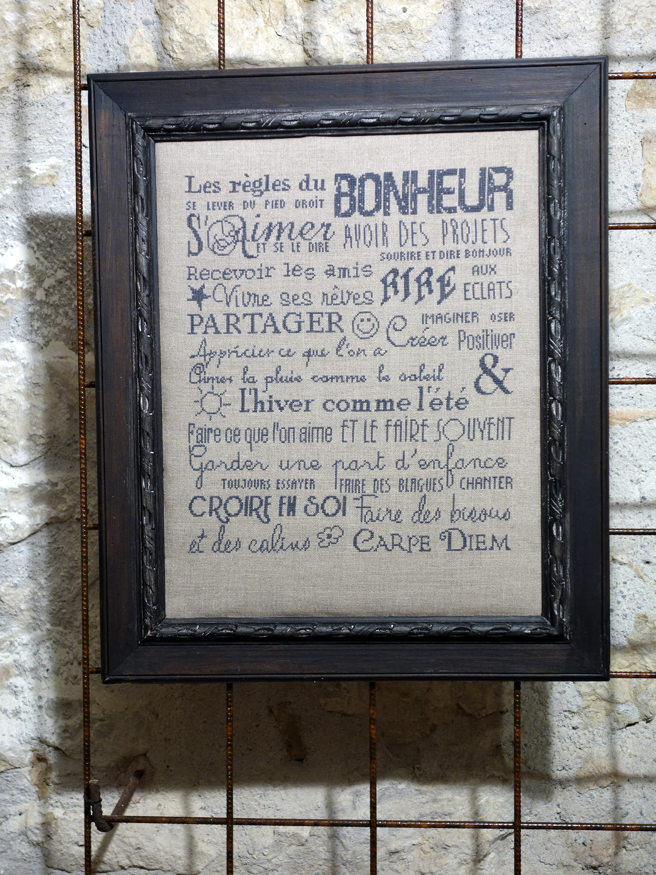 Les règles du BONHEUR
SE LEVER DU PIED DROIT
S'Aimer ET SE LE DIRE AVOIR DES PROJETS
SOURIRE ET DIRE BONJOUR
Recevoir les amis
Vivre ses rêves RIRE AUX ECLATS
PARTAGER IMAGINER OSER
Créer Positiver
Apprécier ce que l'on a
Aimer la pluie comme le soleil &
L'hiver comme l'été
Faire ce que l'on aime ET LE FAIRE SOUVENT
Garder une part d'enfance
TOUJOURS ESSAYER FAIRE DES BLAGUES CHANTER
CROIRE EN SOI Faire des bisous
et des calins CARPE DIEM